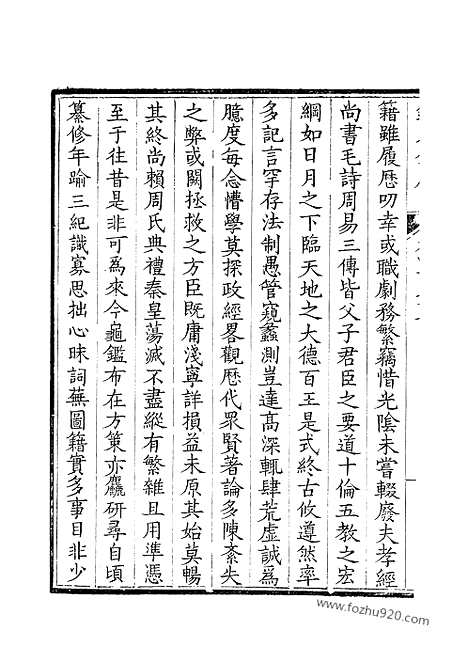 籍雖履歴叨幸或職劇務繁竊惜光陰未嘗輟廢夫孝經
尚書毛詩周易三傳皆父子君臣之要道十倫五教之宏
綱如日月之下臨天地之大德百王是式終古攸遵然率
多記言罕存法制愚管窺蠡測豈達髙深輒肆荒虚誠爲
臆度毎念懵學莫探政經畧觀歴代衆賢著論多陳紊失
之弊或闕拯救之方臣既庸淺寧詳損益未原其始莫暢
其終尚賴周氏典禮秦皇蕩滅不盡縱有繁雜且用準憑
至于往昔是非可爲來今龜鑑布在方策亦麤研尋自頃
纂修年踰三紀識寡思拙心昧詞蕪圖籍實多事目非少
www.fozhu920.com